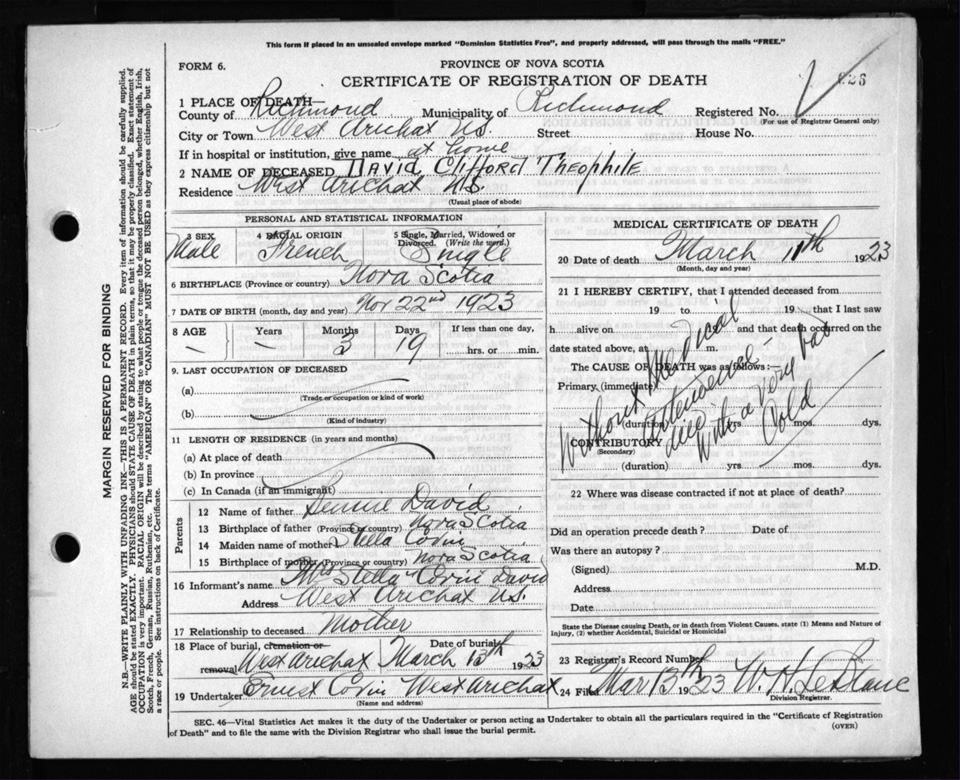 This form if placed in an unsealed envelope marked "Dominion Statistics Free", and properly addressed, will pass through the mails "FREE."
FORM 6.
PROVINCE OF NOVA SCOTIA
CERTIFICATE OF REGISTRATION OF DEATH
1 PLACE OF DEATH—
County of Richmond Municipality of Richmond Registered No.
(For use of Registrar General only)
City or Town West Arichat N.S. Street House No.
If in hospital or institution, give name at home
2 NAME OF DECEASED DAVID Clifford Theophile
Residence West Arichat N.S.
(Usual place of abode)
PERSONAL AND STATISTICAL INFORMATION
3 SEX 4 RACIAL ORIGIN 5 Single, Married, Widowed or Divorced. (Write the word.)
Male French Single
6 BIRTHPLACE (Province or country) Nova Scotia
7 DATE OF BIRTH (month, day and year) Nov 22nd 1923
8 AGE Years Months Days If less than one day,
— — 3 19 hrs. or min.
9. LAST OCCUPATION OF DECEASED
(a)
(Trade or occupation or kind of work)
(b)
(Kind of industry)
11 LENGTH OF RESIDENCE (in years and months)
(a) At place of death
(b) In province
(c) In Canada (if an immigrant)
Parents
12 Name of father David
13 Birthplace of father (Province or country) Nova Scotia
14 Maiden name of mother Stella
15 Birthplace of mother (Province or country) Nova Scotia
16 Informant's name Mrs Stella David
Address West Arichat N.S.
17 Relationship to deceased Mother
18 Place of burial, cremation or removal West Arichat Date of burial March 13th 1923
19 Undertaker Ernest West Arichat
(Name and address)
MEDICAL CERTIFICATE OF DEATH
20 Date of death March 11th 1923
(Month, day and year)
21 I HEREBY CERTIFY, that I attended deceased from
19 to 19 that I last saw
h alive on and that death occurred on the
date stated above, at m.
The CAUSE OF DEATH was as follows:
Primary (immediate)
(duration) yrs. mos. dys.
CONTRIBUTORY
(Secondary)
(duration) yrs mos. dys.
Without Medical
attendence—
due with a very bad
Cold
22 Where was disease contracted if not at place of death?
Did an operation precede death? Date of
Was there an autopsy?
(Signed) M.D.
Address
Date
State the Disease causing Death, or in death from Violent Causes, state (1) Means and Nature of Injury, (2) whether Accidental, Suicidal or Homicidal
23 Registrar's Record Number
24 Filed Mar 13th 1923 W. H. LeBlanc
Division Registrar.
SEC. 46—Vital Statistics Act makes it the duty of the Undertaker or person acting as Undertaker to obtain all the particulars required in the "Certificate of Registration
of Death" and to file the same with the Division Registrar who shall issue the burial permit.
(OVER)
MARGIN RESERVED FOR BINDING
N.B.—WRITE PLAINLY WITH UNFADING INK—THIS IS A PERMANENT RECORD. Every item of information should be carefully supplied.
AGE should be stated EXACTLY. PHYSICIANS should STATE CAUSE OF DEATH in plain terms, so that it may be properly classified. Exact statement of
OCCUPATION is very important. RACIAL ORIGIN will be described by stating to what people or tongue the deceased person belonged, whether English, Irish,
Scotch, French, German, Russian, Ruthenian, etc. The terms "AMERICAN" OR "CANADIAN" MUST NOT BE USED as they express citizenship but not
a race or people. See instructions on back of Certificate.